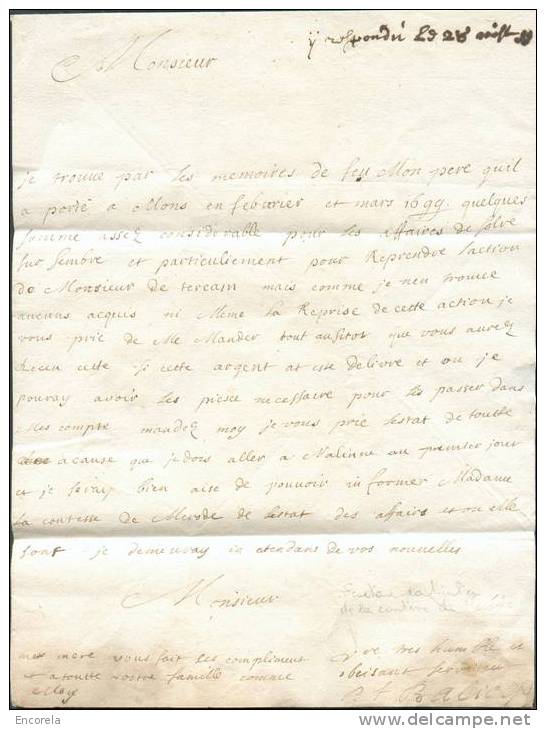 y respondu le 28 aoust 99
Monsieur
je trouve par les memoires de feu Mon pere quil
a porté a Mons en febvrier et mars 1699 quelques
somme assez considerable pour les affaires de Solre
sur sembre et particuliement pour Reprendre laction
de Monsieur de tercain mais comme je neu trouve
aucuns acquis ni Meme la Reprise de cette action je
vous prie de Me Mander tout aussitot que vous aurez
Recu cette si cette argent at este delivre et ou je
pouray avoir les piesce necessaire pour les passer dans
Mes compte mandez moy je vous prie lestat de toutte
acause que je dois aller a Malinne au premier jour
et je seray bien aise de pouvoir informer Madame
la contesse de Merode de lestat des affairs et ou elle
sont je demeuray ici atendans de vos nouvelles
Monsieur
de la
mes mere vous fait ses compliment
et a toutte vostre famille comme
Moy
vre tres humble et
obeisant serviteur
Encorela
www.delcampe.net